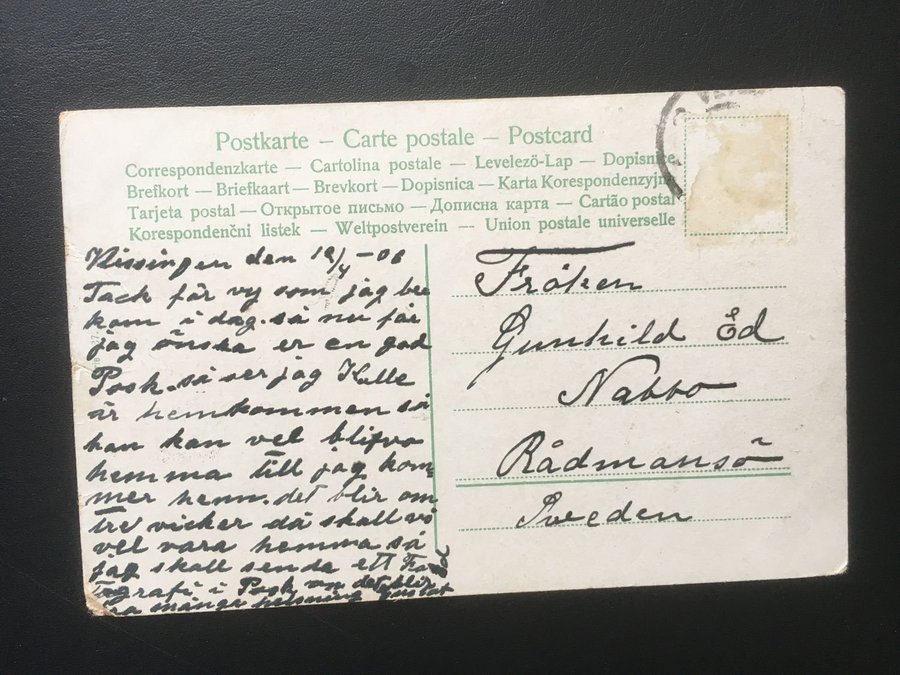 Postkarte – Carte postale – Postcard
Correspondenzkarte — Cartolina postale — Levelező-Lap — Dopisnice
Brefkort — Briefkaart — Brevkort — Dopisnica — Karta Korespondenzyjna
Tarjeta postal — Открытое письмо — Дописна карта — Cartão postal
Korespondenční listek — Weltpostverein — Union postale universelle
Kissingen den 12/4 – 06
Tack för vy som jag be
kom i dag. så nu får
jag önska er en god
Posk. så ser jag Kalle
är hemkommen så
han kan vel blifva
hemma till jag kom
mer hem. det blir om
tre vicker då skall vi
vel vara hemma så
jag skall senda ett Fo
tografi i Posk om det blir
bra många helsning Gustaf
Fröken
Gunhild Ed
Nabbo
Rådmansö
Sweden